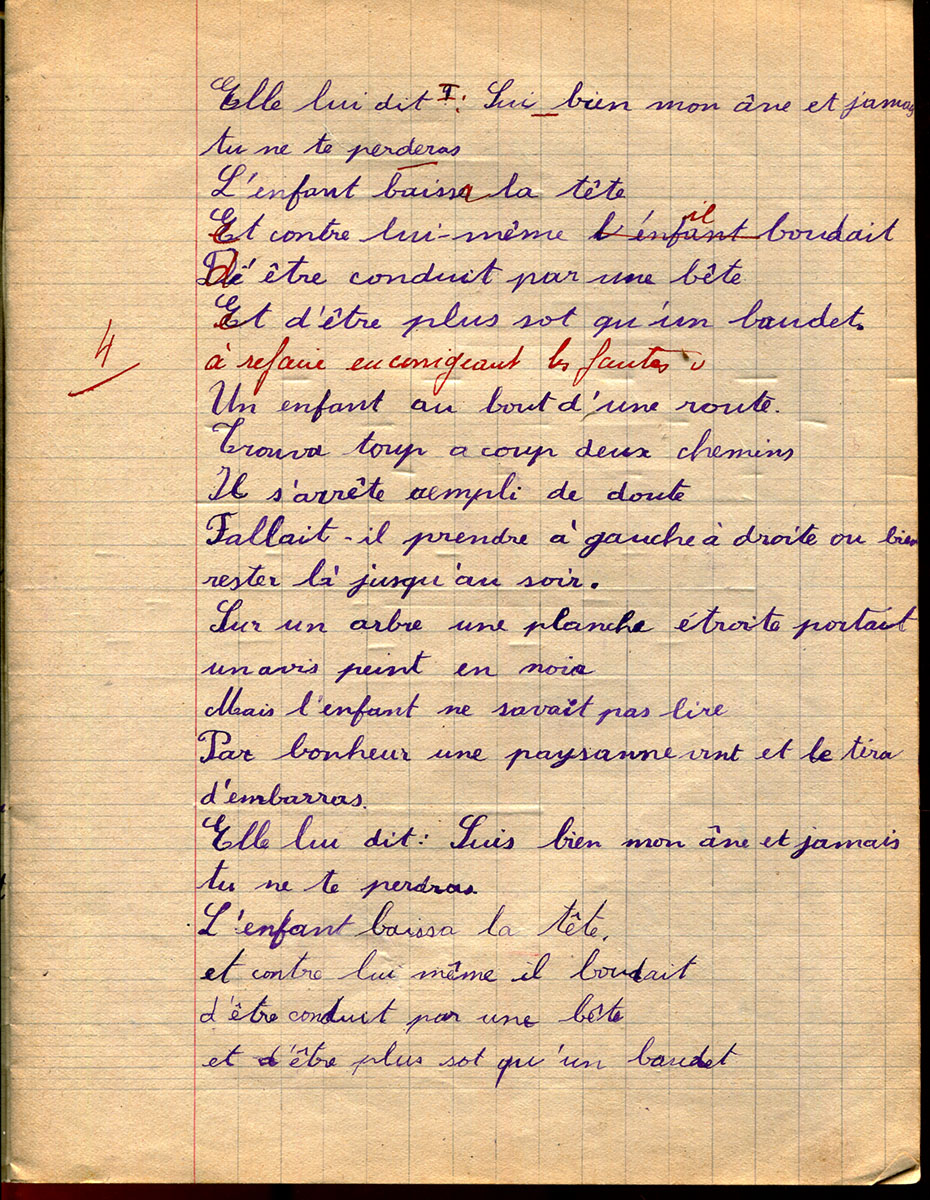 Elle lui dit I: Sui bien mon âne et jamais
tu ne te perderas
L'enfant baissa la tête
Et contre lui-même l'énfant il boudait
D'être conduit par une bête
Et d'être plus sot qu'un baudet.
4
à refaire en corrigeant les fautes
Un enfant au bout d'une route.
Trouva toup a coup deux chemins
Il s'arrête rempli de doute
Fallait-il prendre à gauche à droite ou bien
rester là jusqu'au soir.
Sur un arbre une planche étroite portait
un avis peint en noir
Mais l'enfant ne savait pas lire
Par bonheur une paysanne vint et le tira
d'embarras.
Elle lui dit: Suis bien mon âne et jamais
tu ne te perdras.
L'enfant baissa la tête.
et contre lui même il boudait
d'être conduit par une bête
et d'être plus sot qu'un baudet